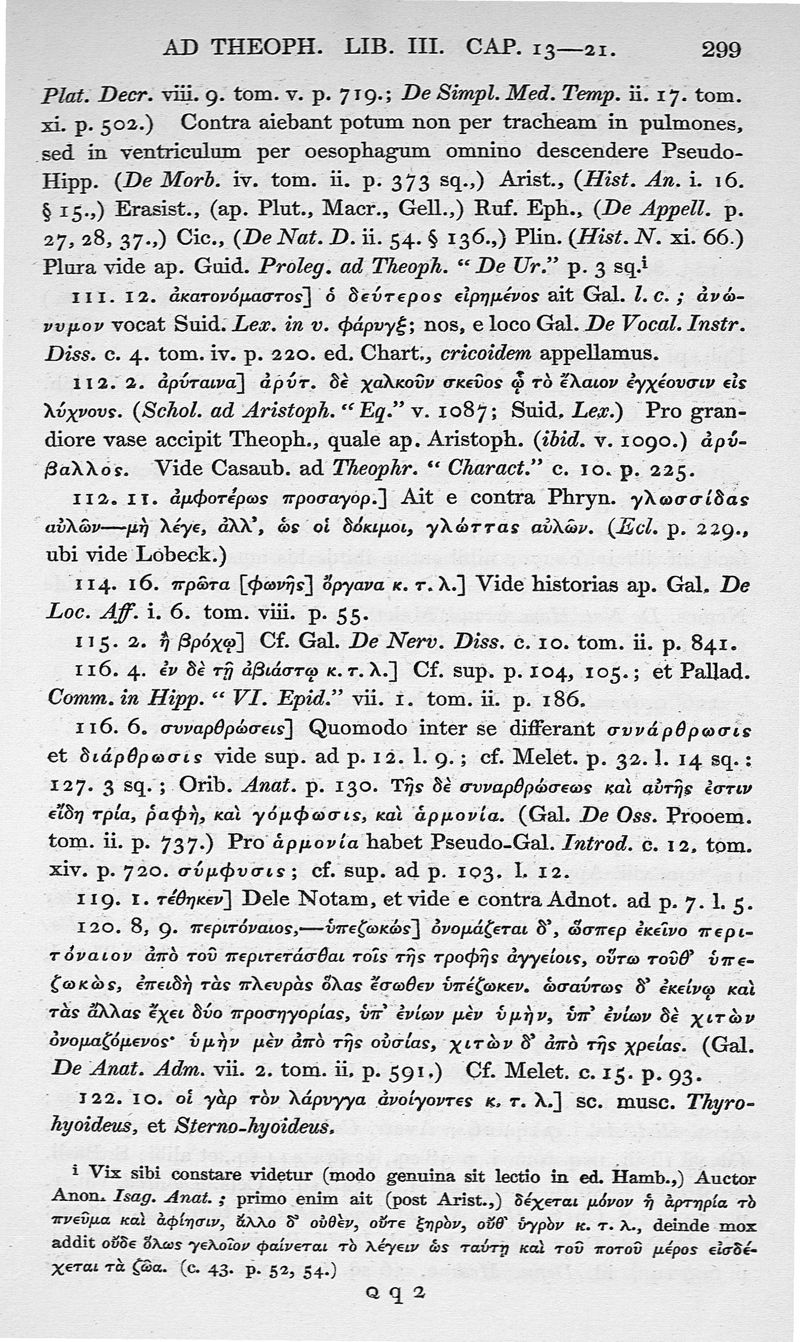 AD THEOPH. LIB. III. CAP. 13—21. 299
Plat. Decr. viii. 9. tom. v. p. 719.; De Simpl. Med. Temp. ii. 17. tom.
xi. p. 502.) Contra aiebant potum non per tracheam in pulmones,
sed in ventriculum per oesophagum omnino descendere Pseudo-
Hipp. (De Morb. iv. tom. ii. p. 373 sq.,) Arist., (Hist. An. i. 16.
§ 15.,) Erasist., (ap. Plut., Macr., Gell.,) Ruf. Eph., (De Appell. p.
27, 28, 37.,) Cic., (De Nat. D. ii. 54. § 136.,) Plin. (Hist. N. xi. 66.)
Plura vide ap. Guid. Proleg. ad Theoph. “ De Ur.” p. 3 sq.i
111. 12. ἀκατονόμαστος] ὁ δεύτερος εἰρημένος ait Gal. l. c. ; ἀνώ-
νυμον vocat Suid. Lex. in v. φάρυγξ; nos, e loco Gal. De Vocal. Instr.
Diss. c. 4. tom. iv. p. 220. ed. Chart., cricoidem appellamus.
112. 2. ἀρύταινα] ἀρύτ. δὲ χαλκοῦν σκεῦος ᾧ τὸ ἔλαιον ἐγχέουσιν εἰς
λύχνους. (Schol. ad Aristoph. “ Eq.” v. 1087; Suid. Lex.) Pro gran-
diore vase accipit Theoph., quale ap. Aristoph. (ibid. v. 1090.) ἀρύ-
βαλλος. Vide Casaub. ad Theophr. “ Charact.” c. 10. p. 225.
112. 11. ἀμφοτέρως προσαγορ.] Ait e contra Phryn. γλωσσίδας
αὐλῶν—μὴ λέγε, ἀλλ’, ὡς οἱ δόκιμοι, γλώττας αὐλῶν. (Ecl. p. 229.,
ubi vide Lobeck.)
114. 16. πρῶτα [φωνῆς] ὄργανα κ. τ. λ.] Vide historias ap. Gal. De
Loc. Aff. i. 6. tom. viii. p. 55.
115. 2. ἢ βρόχῳ] Cf. Gal. De Nerv. Diss. c. 10. tom. ii. p. 841.
116. 4. ἐν δὲ τῇ ἀβιάστῳ κ. τ. λ.] Cf. sup. p. 104, 105.; et Pallad.
Comm. in Hipp. “ VI. Epid.” vii. 1. tom. ii. p. 186.
116. 6. συναρθρώσεις] Quomodo inter se differant συνάρθρωσις
et διάρθρωσις vide sup. ad p. 12. l. 9. ; cf. Melet. p. 32. l. 14 sq. :
127. 3 sq. ; Orib. Anat. p. 130. Τῆς δὲ συναρθρώσεως καὶ αὐτῆς ἐστιν
εἴδη τρία, ῥαφὴ, καὶ γόμφωσις, καὶ ἁρμονία. (Gal. De Oss. Prooem.
tom. ii. p. 737.) Pro ἁρμονία habet Pseudo-Gal. Introd. c. 12. tom.
xiv. p. 720. σύμφυσις ; cf. sup. ad p. 103. l. 12.
119. 1. τέθηκεν] Dele Notam, et vide e contra Adnot. ad p. 7. l. 5.
120. 8, 9. περιτόναιος,—ὑπεζωκώς] ὀνομάζεται δ’, ὥσπερ ἐκεῖνο περι-
τόναιον ἀπὸ τοῦ περιτετάσθαι τοῖς τῆς τροφῆς ἀγγείοις, οὕτω τοῦθ’ ὑπε-
ζωκὼς, ἐπειδὴ τὰς πλευρὰς ὅλας ἔσωθεν ὑπέζωκεν. ὡσαύτως δ’ ἐκείνῳ καὶ
τὰς ἄλλας ἔχει δύο προσηγορίας, ὑπ’ ἐνίων μὲν ὑμὴν, ὑπ’ ἐνίων δὲ χιτὼν
ὀνομαζόμενος· ὑμὴν μὲν ἀπὸ τῆς οὐσίας, χιτὼν δ’ ἀπὸ τῆς χρείας. (Gal.
De Anat. Adm. vii. 2. tom. ii. p. 591.) Cf. Melet. c. 15. p. 93.
122. 10. οἱ γὰρ τὸν λάρυγγα ἀνοίγοντες κ. τ. λ.] sc. musc. Thyro-
hyoideus, et Sterno-hyoideus.
i Vix sibi constare videtur (modo genuina sit lectio in ed. Hamb.,) Auctor
Anon. Isag. Anat. ; primo enim ait (post Arist.,) δέχεται μόνον ἡ ἀρτηρία τὸ
πνεῦμα καὶ ἀφίησιν, ἄλλο δ’ οὐθὲν, οὔτε ξηρὸν, οὔθ’ ὑγρὸν κ. τ. λ., deinde mox
addit οὔδε ὅλως γελοῖον φαίνεται τὸ λέγειν ὡς ταύτῃ καὶ τοῦ ποτοῦ μέρος εἰσδέ-
χεται τὰ ζῶα. (c. 43. p. 52, 54.)
Q q 2